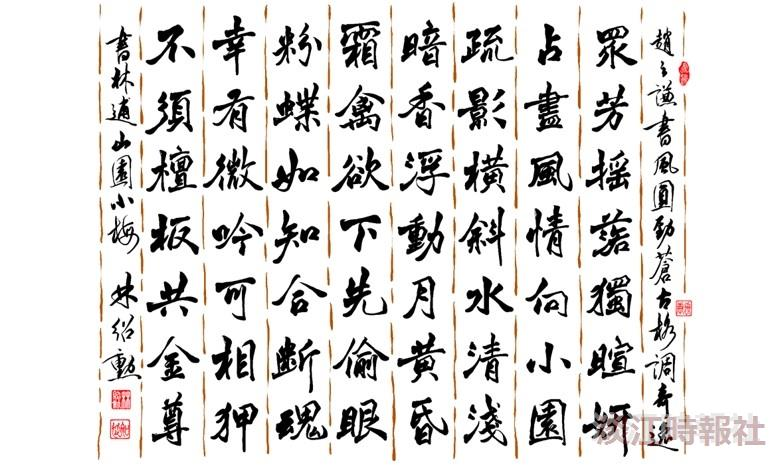 趙之謙書風圓勁蒼古格調奇逸
眾芳搖落獨暄妍
占盡風情向小園
疏影橫斜水清淺
暗香浮動月黃昏
霜禽欲下先偷眼
粉蝶如知合斷魂
幸有微吟可相狎
不須檀板共金尊
書林逋山園小梅 林紹勳
淡江時報社